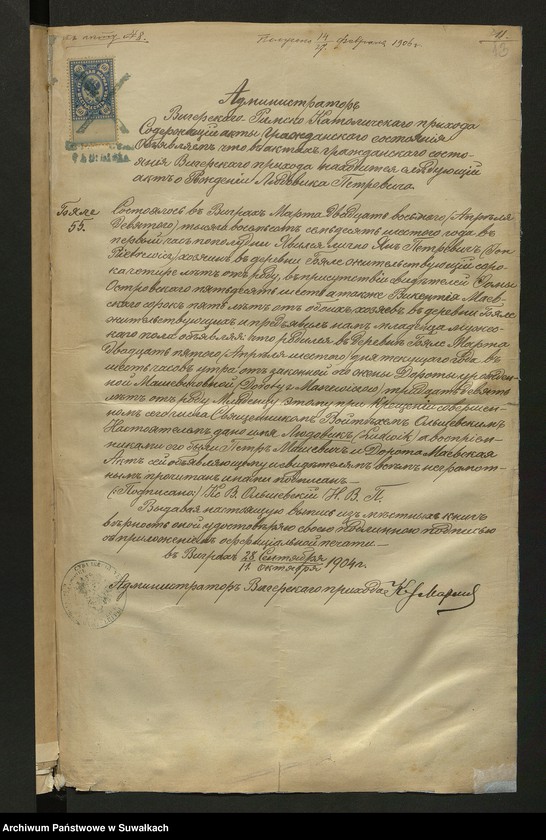 къ акту № 8.
Получено 14/27 февраля 1906 г.
11.
13
Администраторъ
Вигерскаго Римско Католическаго прихода
Содержащій акты Гражданскаго состоянія
Объявляетъ что въ актахъ гражданскаго состо-
янія Вигерскаго прихода находится слѣдующій
актъ о Рожденіи Людовика Петревича.
55.
Состоялось въ Виграхъ Марта Двадцать восьмого /Апрѣля
Девятого/ тысяча восемьсотъ семьдесятъ шестого года въ
первый часъ пополудни Явился лично Янъ Петревичъ /Jan
Pietrewicz/ хозяинъ въ деревни жительствующій соро-
ка четыре лѣтъ отъ роду, въ присутствіи свидѣтелей Фомы
Островскаго пятьдесятъ шесть а также Викентія Маев-
скаго сорокъ пять лѣтъ отъ обоихъ хозяевъ въ деревни
жительствующихъ и предъявилъ намъ младенца мужес-
каго пола объявляя что родился въ деревни Марта
Двадцать пятого /Апрѣля шестого/ дня текущаго года въ
шесть часовъ утра отъ законной его жены Доротеи урожден-
ной /Дороту z / тридцать девять
лѣтъ отъ роду Младенцу этому при Крещеніи совершен-
номъ сего числа Священникомъ Войтѣхомъ Ольшевскимъ
Настоятелемъ дано имя Людовикъ /Ludwik/ а воспріем-
никами его были Петръ и Дорота Маевская
Актъ сей объявляющему и свидѣтелямъ всѣмъ неграмот-
нымъ прочитанъ и нами подписанъ
/Подписано/ Кс. В. Ольшевскій Н. В. П.
Выдавая настоящую выпись изъ мѣстныхъ книгъ
вѣрность оной удостовѣряю своею подлинною подписью
съ приложеніемъ оффиціальной печати
въ Виграхъ 28 Сентября / 11 октября 1904 г.
Администраторъ Вигерскаго прихода
Archiwum Państwowe w Suwałkach